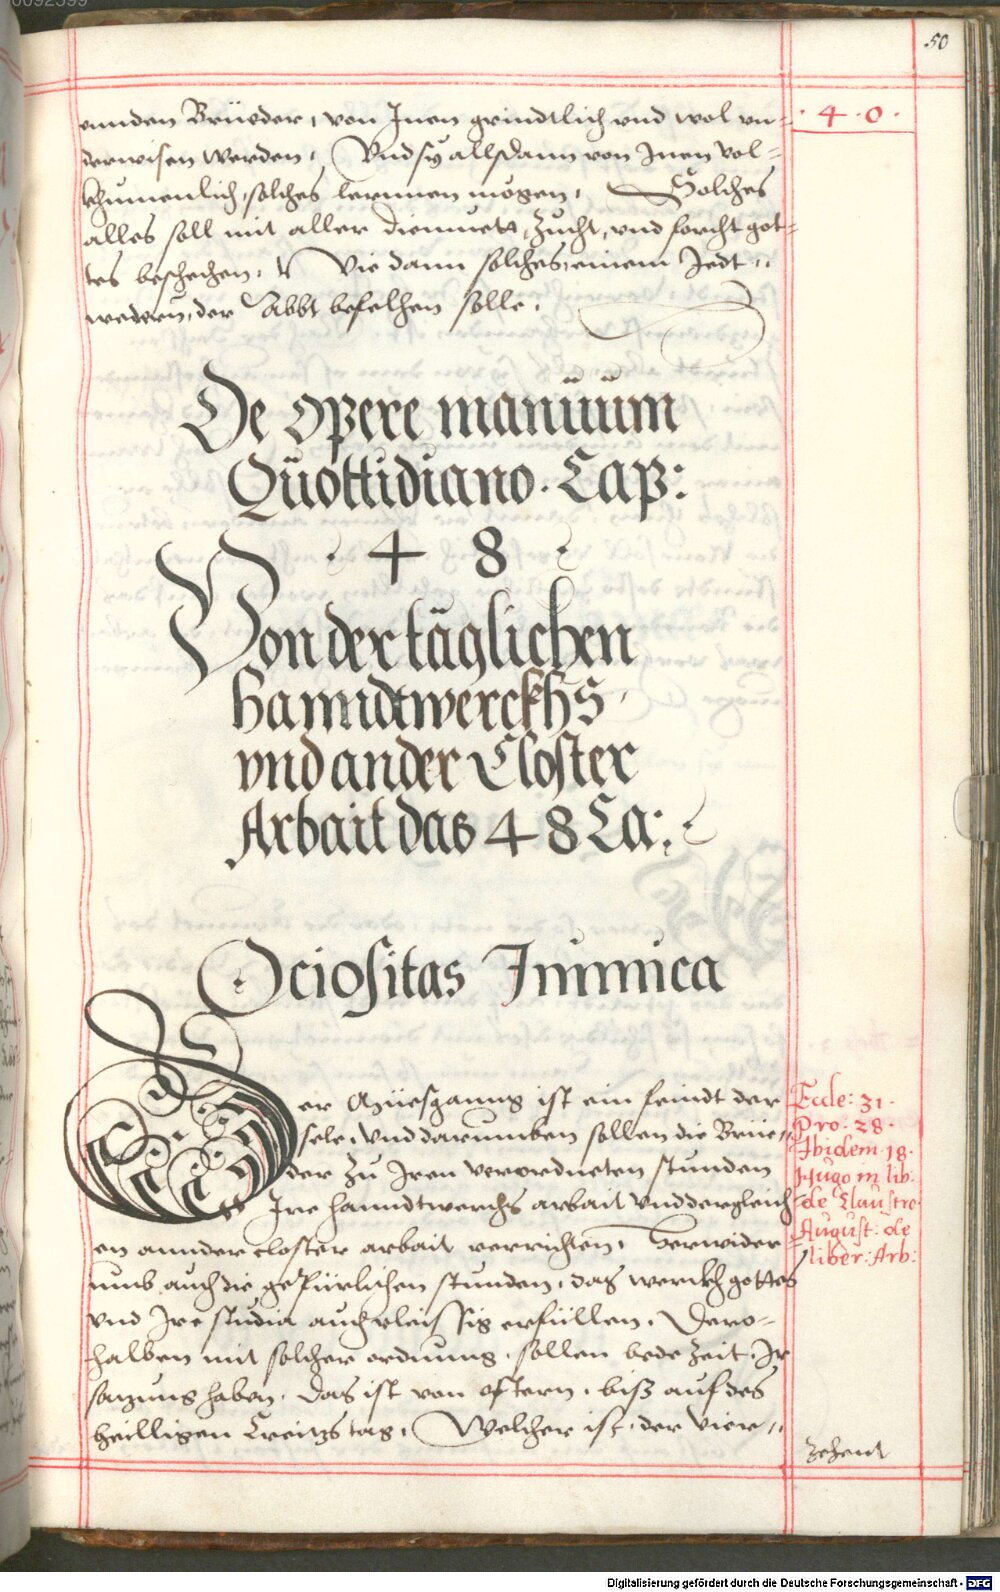 50
· 4 · 0 ·
annden Brüeder, von Inen grindtlich vnd wol vn=
derwisen werden, Vnd sy allßdann von Inen vol=
khumenlich, solches lernnen mögen, Solches
alles soll mit aller diemuett, Zucht, vnd forcht got=
tes beschechen, Wie dann solches, einem Jedt=
wedern, der Abbt befelhen solle.
De opere manuum
Quottidiano. Cap:
4 8
Von der täglichen
hanndtwerckhs
vnd ander Closter
Arbait das 48 Ca:
Ociositas Inimica
Der Müesganng ist ein feindt der
sele, Vnd darumben sollen die Brüe=
der Zu Iren verordneten stunden
Ire hanndtwerchs arbait vnd dergleich=
en annder closter arbait verrichten, Herwider
umb auch die gebürlichen stunden, das werckh gottes
vnd Ire studia auch vleissig erfüllen, Dero=
halben mit solcher ordnung, sollen bede Zeit, Ir
satzung haben, Das ist von ostern, biß auf des
heilligen Creitzs tag, Welcher ist, der vier=
zehent
Eccle: 31.
Pro: 28.
Ibidem 18.
Hugo in lib:
de Claustro
August: de
liber: Arb:
Digitalisierung gefördert durch die Deutsche Forschungsgemeinschaft - DFG